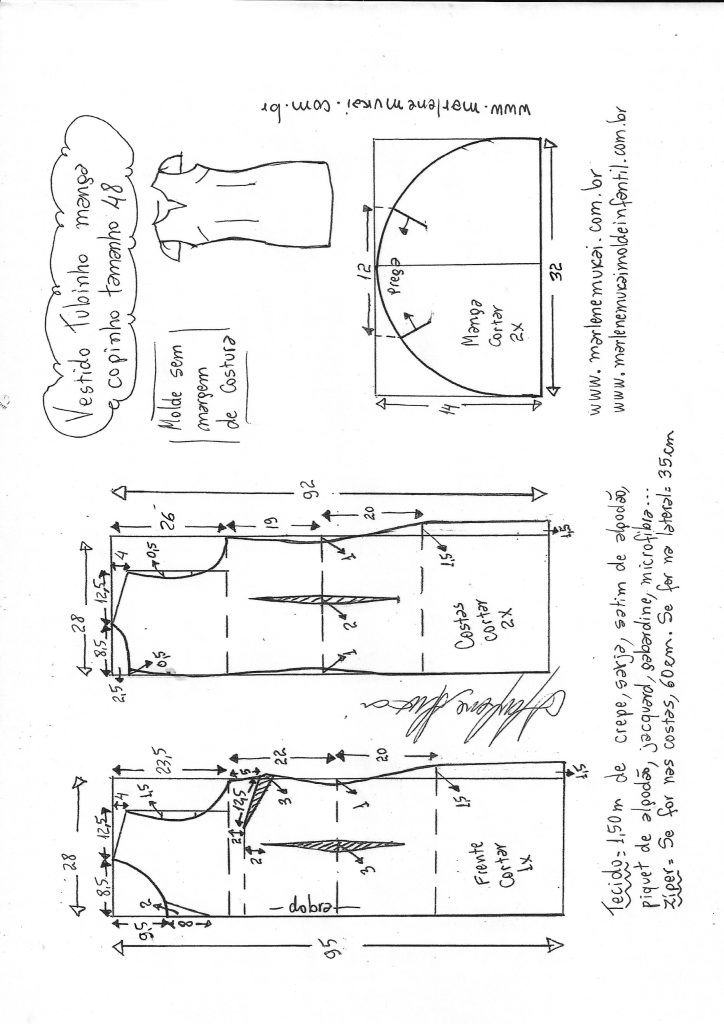 Vestido Tubinho manga
e copinho tamanho 48
Molde sem
margem
de Costura
www.marlenemukai.com.br
12
Prega
Manga
Cortar
2x
14
32
www.marlenemukai.com.br
www.marlenemoldeinfantil.com.br
92
26
19
20
28
8,5
12,5
4
0,5
2,5
0,5
1
2
1
1,5
1,5
Costas
cortar
2x
Marlene Mukai
95
23,5
22
20
28
8,5
12,5
4
1,5
9,5
8
2
5
12,5
3
2
2
1
3
1,5
1,5
dobra
Frente
Cortar
1x
Tecido = 1,50m de crepe, sarja, satim de algodão,
piquet de algodão, jacquard, gabardine, microfibra...
Zíper = Se for nas costas, 60cm. Se for na lateral = 35cm